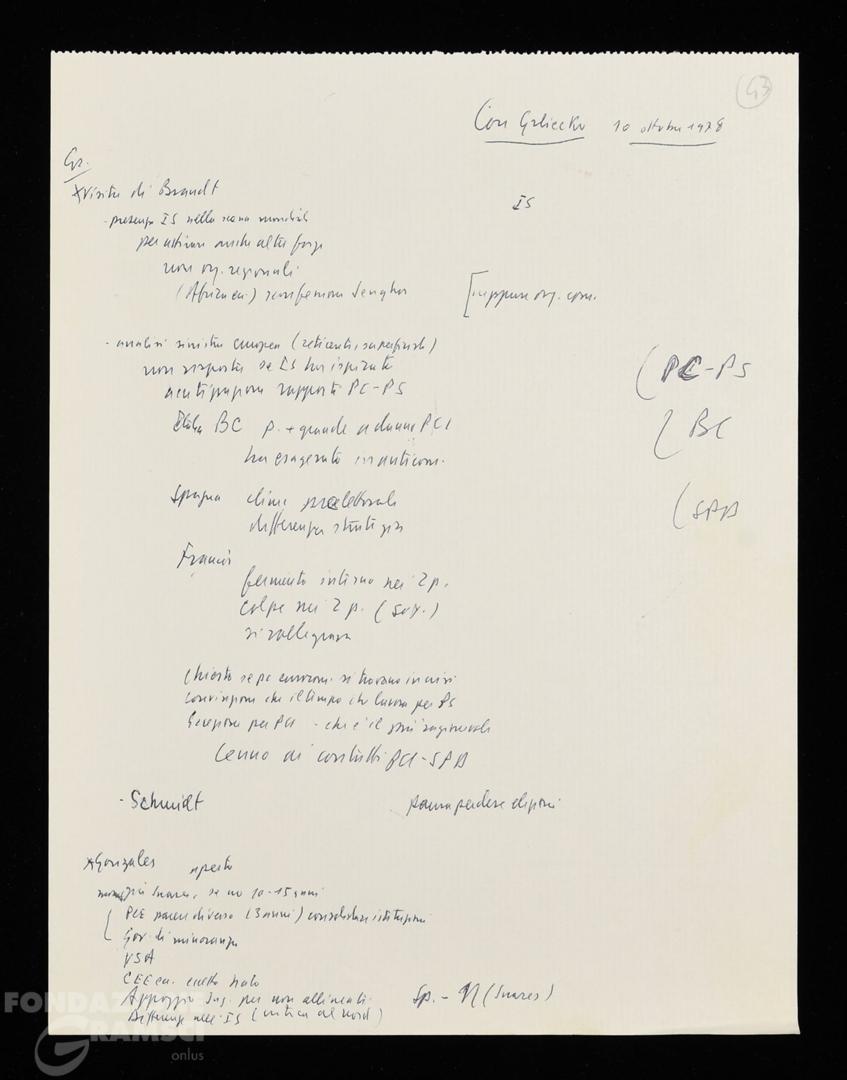 43
Con Grlickov 10 ottobre 1978
Gr.
Visita di Brandt
IS
- presenza IS nella scena mondiale
per attivare anche altre forze
non org. regionali
(Africa ecc.) Senghor
[neppure org. com.
- analisi sinistra europea (reticente, superficiale)
non risposta se IS ha ispirato
rapporti PC-PS
(PC-PS
Italia BC p. + grande a danno PCI
(BC
ha esagerato in anticom.
Spagna clima preelettorale
differenza strategia
(SPD
Francia
fermento interno nei 2 p.
colpe nei 2 p. (Sov.)
si rallegrava
Chiesto se pc eurocom. si trovano in crisi
convinzione che il tempo lavora per PS
Eccezione per PCI - che è il più ragionevole
Cenno ai contatti PCI-SPD
- Schmidt paura perdere elezioni
Gonzales aperto
Suarez, se no 10-15 anni
PCE parere diverso (3 anni) consolidare istituzioni
Gov. di minoranza
USA
CEE Nato
Appoggio Jug. per non allineati. Sp. - (Suarez)
Differenze nell'IS (critica al Nord)
FONDAZIONE
GRAMSCI
onlus